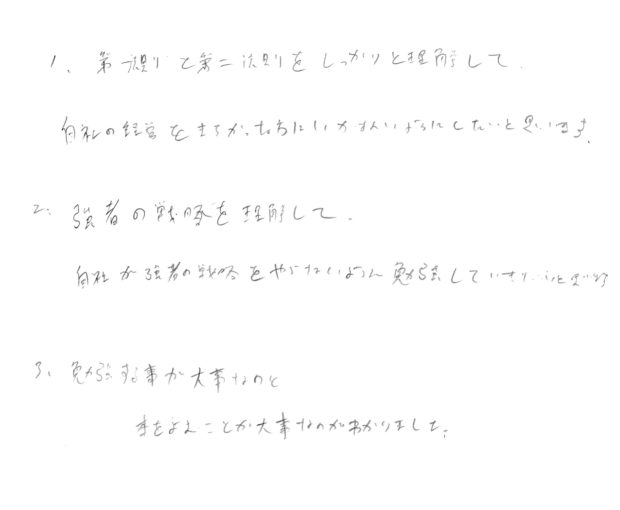 1. 第一法則と第二法則をしっかりと理解して.
自社の経営をまちがった方にいかないようにしたいと思います.
2. 強者の戦略を理解して.
自社が強者の戦略をやらないように勉強していきたいと思います
3. 勉強する事が大事なのと
本をよむことが大事なのがわかりました.